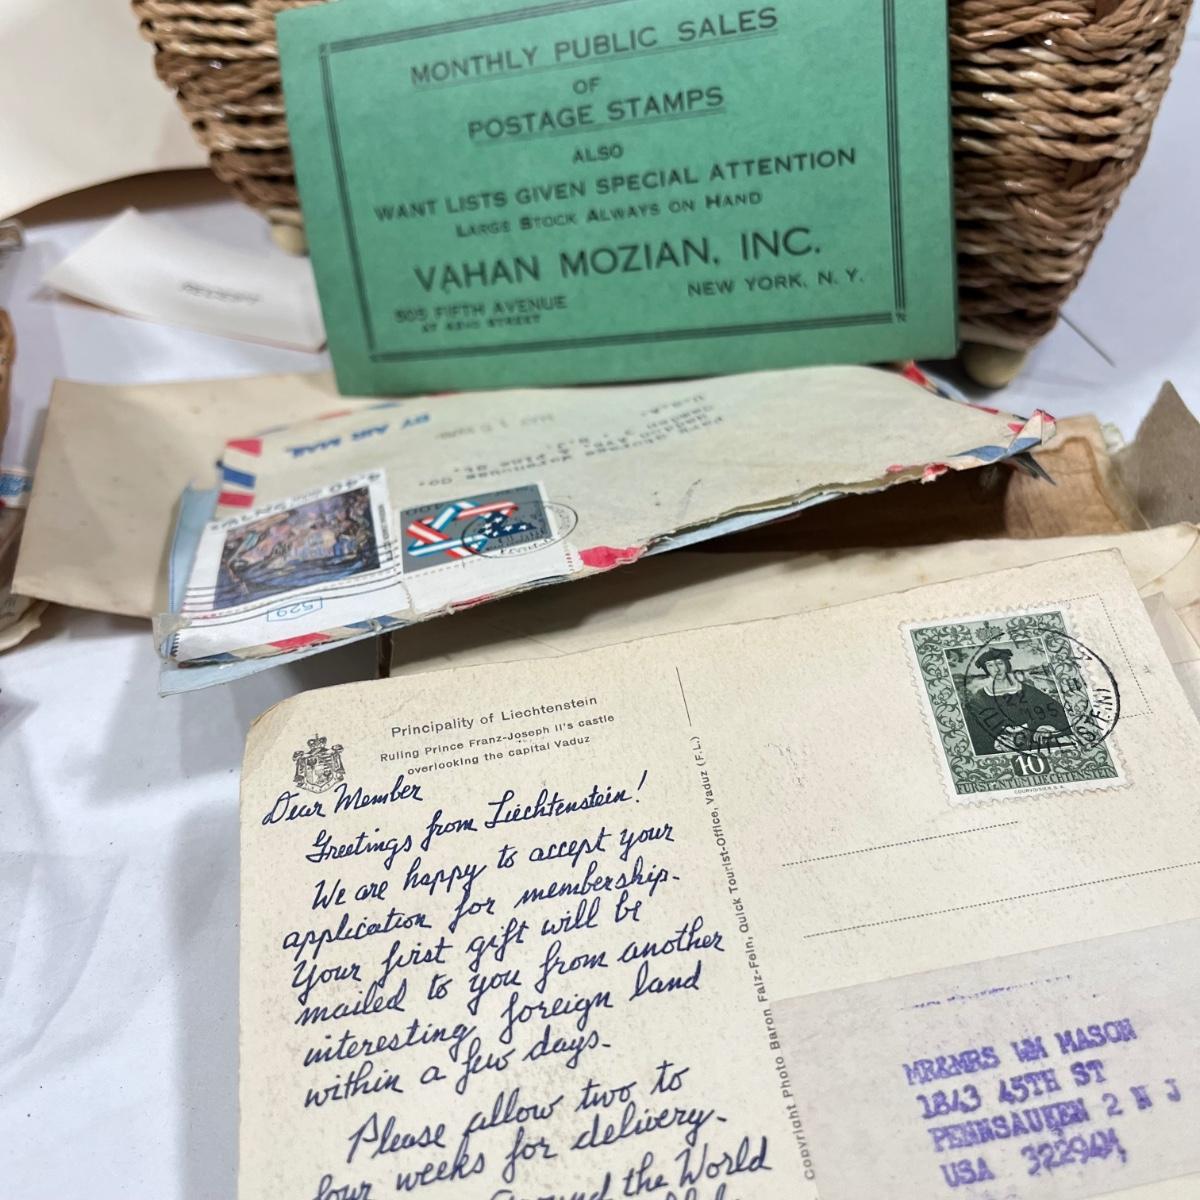 MONTHLY PUBLIC SALES
OF
POSTAGE STAMPS
ALSO
WANT LISTS GIVEN SPECIAL ATTENTION
LARGE STOCK ALWAYS ON HAND
VAHAN MOZIAN, INC.
505 FIFTH AVENUE
AT 42ND STREET
NEW YORK, N. Y.
BY AIR MAIL
U.S.A.
529
Principality of Liechtenstein
Ruling Prince Franz-Joseph II's castle
overlooking the capital Vaduz
Dear Member
Greetings from Liechtenstein!
We are happy to accept your
application for membership.
Your first gift will be
mailed to you from another
interesting foreign land
within a few days.
Please allow two to
four weeks for delivery.
around the World
Copyright Photo Baron Falz-Fein, Quick Tourist-Office, Vaduz (F.L.)
10
FÜRSTENTUM LIECHTENSTEIN
COURVOISIER S.A.
MR&MRS WM MASON
1843 45TH ST
PENNSAUKEN 2 N J
USA 32294M